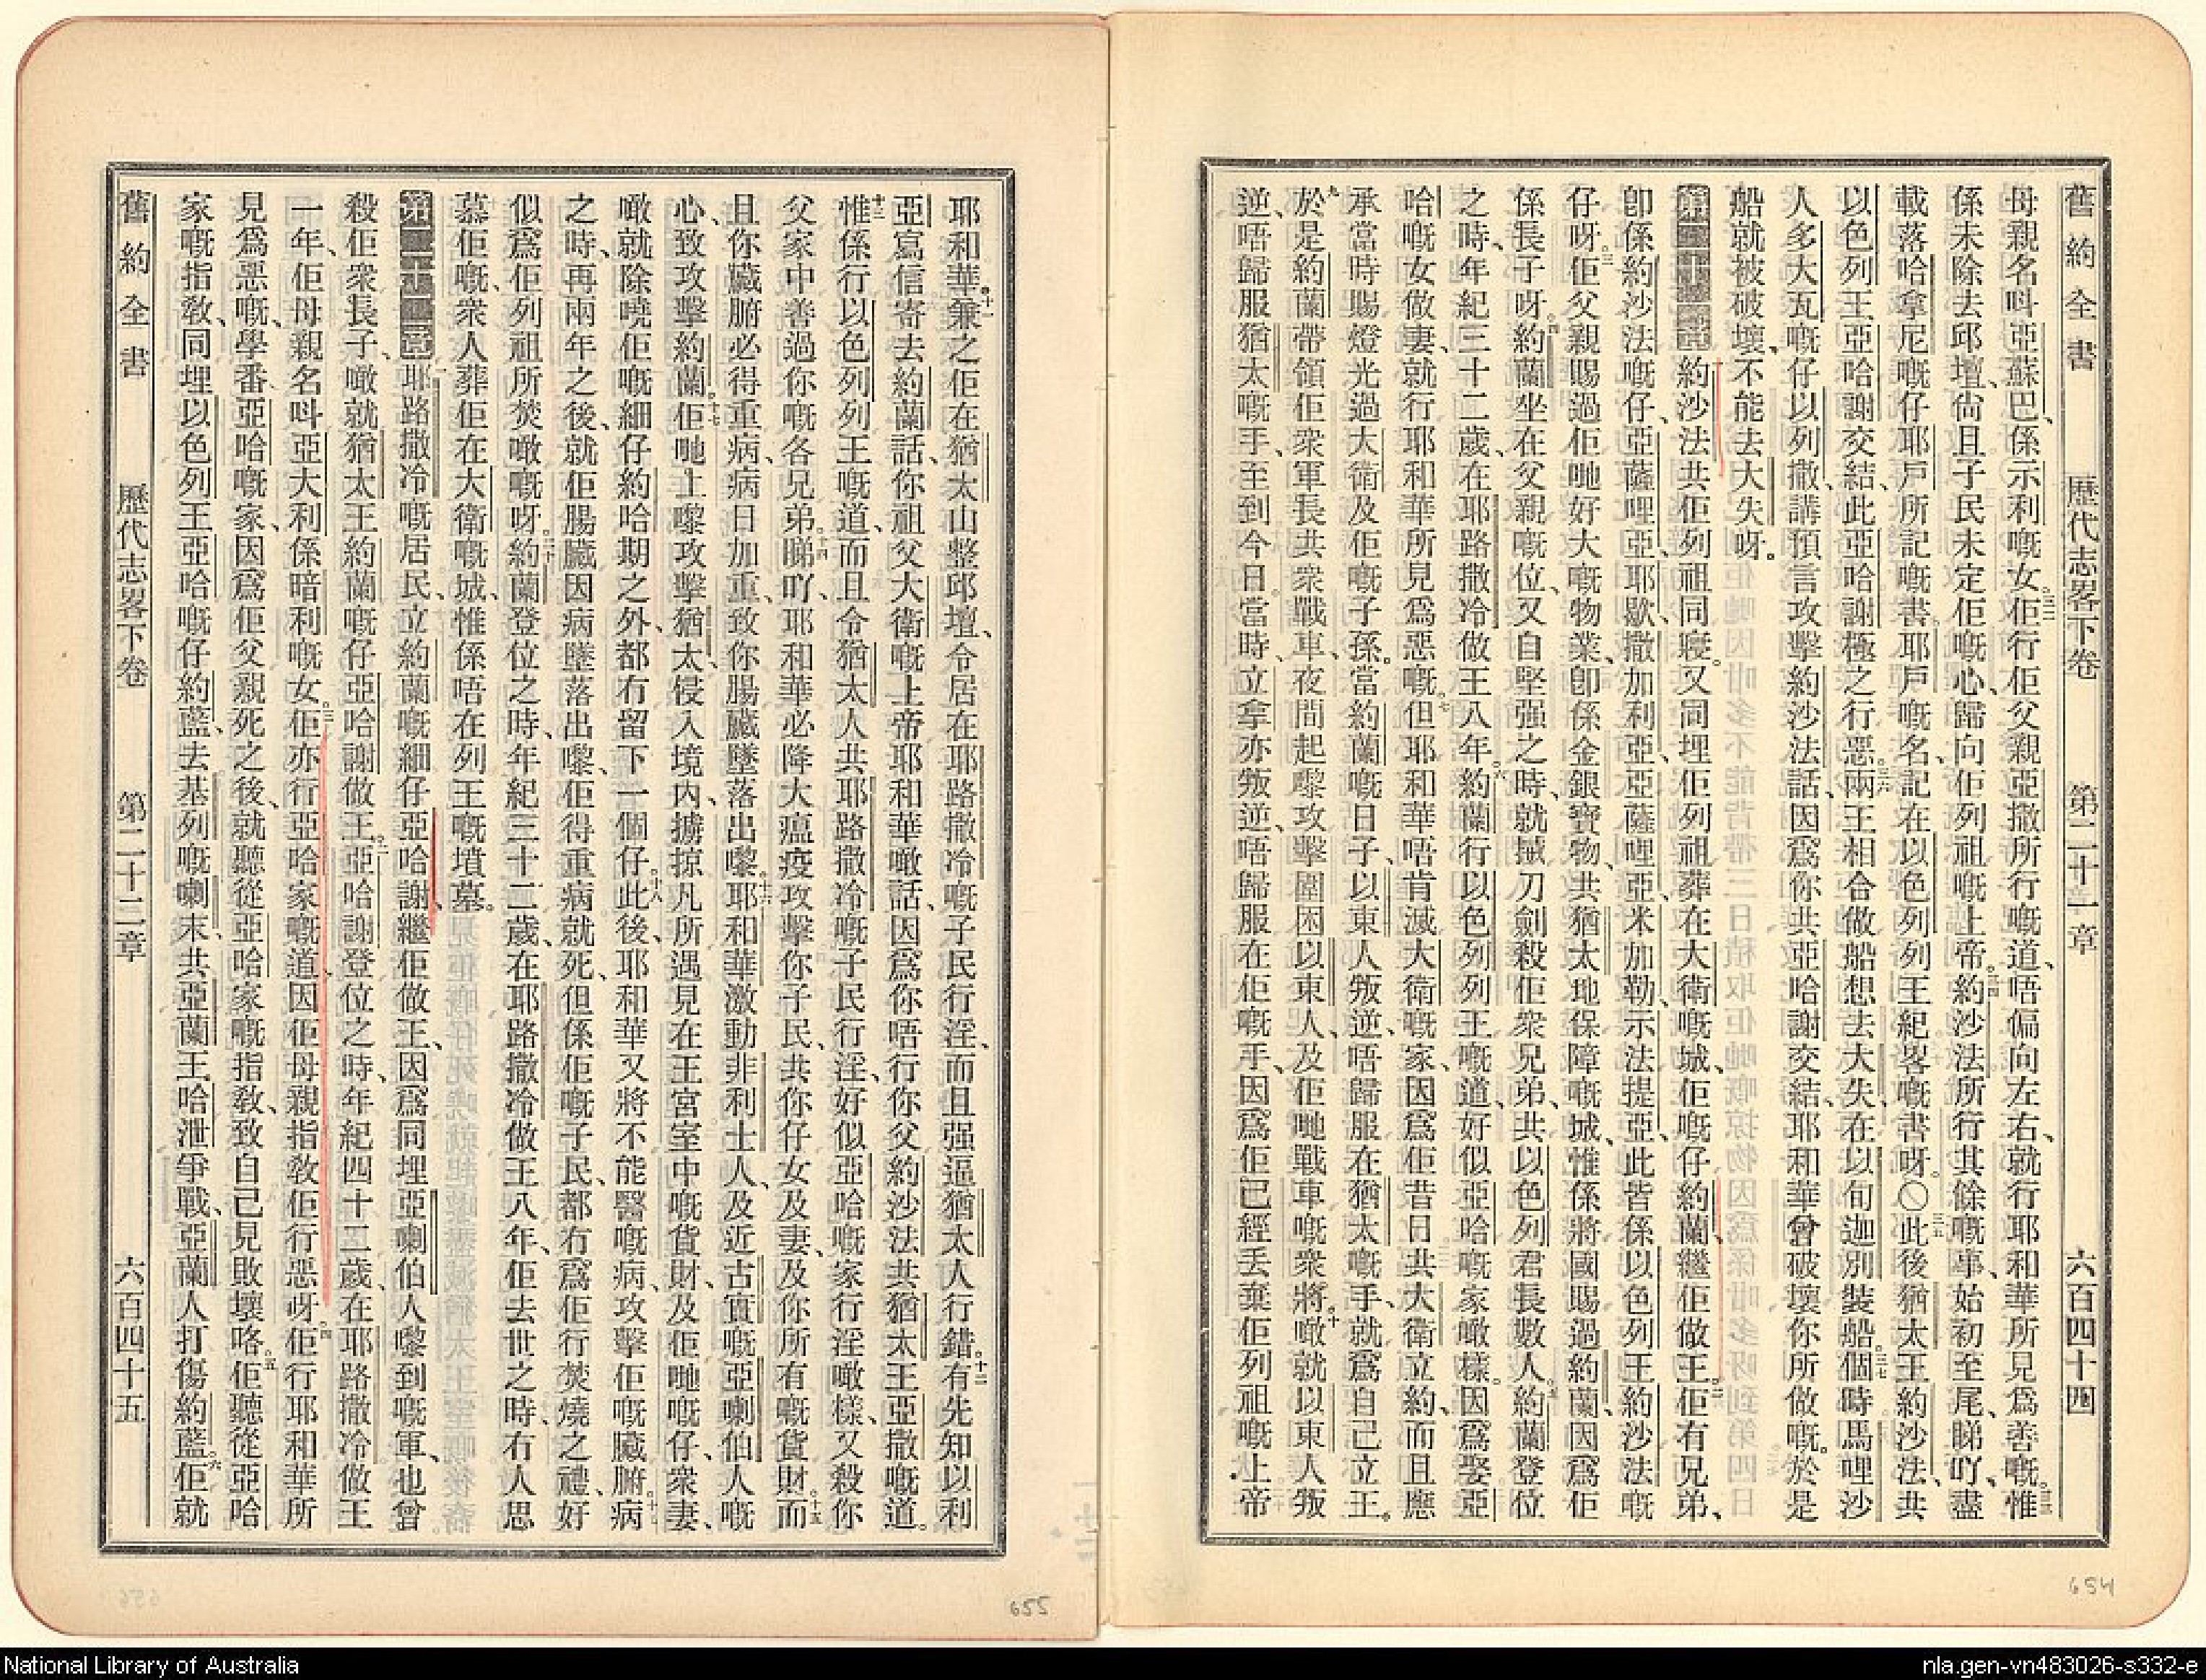 舊約全書 歷代志畧下卷 第二十一章 六百四十四
母親名呌亞蘇巴、係示利嘅女。三二佢行佢父親亞撒所行嘅道、唔偏向左右、就行耶和華所見爲善嘅。三三惟
係未除去邱壇、尙且子民未定佢嘅心、歸向佢列祖嘅上帝。三四約沙法所行其餘嘅事、始初至尾、睇吖、盡
載落哈拿尼嘅仔耶戶所記嘅書。耶戶嘅名、記在以色列列王紀畧嘅書呀。〇三五此後猶太王約沙法、共
以色列王亞哈謝交結、此亞哈謝極之行惡。三六兩王相合做船想去大失、在以旬迦別裝船。三七個時馬哩沙
人多大瓦嘅仔以列撒、講預言攻擊約沙法話、因爲你共亞哈謝交結、耶和華曾破壞你所做嘅。於是
船就被破壞、不能去大失呀。
第二十一章 約沙法共佢列祖同寢。又同埋佢列祖葬在大衛嘅城、佢嘅仔約蘭繼佢做王。二佢有兄弟、
卽係約沙法嘅仔、亞薩哩亞、耶歇、撒加利亞、亞薩哩亞、米加勒、示法提亞、此皆係以色列王約沙法嘅
仔呀。三佢父親賜過佢哋好大嘅物業、卽係金銀寶物、共猶太地保障嘅城、惟係將國賜過約蘭、因爲佢
係長子呀。四約蘭坐在父親嘅位、又自堅强之時、就㨢刀劍殺佢衆兄弟、共以色列君長數人。五約蘭登位
之時、年紀三十二歲、在耶路撒冷做王八年。六約蘭行以色列列王嘅道、好似亞哈嘅家噉樣。因爲娶亞
哈嘅女做妻、就行耶和華所見爲惡嘅。七但耶和華唔肯滅大衛嘅家、因爲佢昔日共大衛立約、而且應
承當時賜燈光過大衛及佢嘅子孫。八當約蘭嘅日子、以東人叛逆、唔歸服在猶太嘅手、就爲自己立王。
九於是約蘭帶領佢衆軍長共衆戰車、夜間起嚟攻擊圍困以東人、及佢哋戰車嘅衆將。十噉就以東人叛
逆、唔歸服猶太嘅手、至到今日。當時、立拿亦叛逆、唔歸服在佢嘅手、因爲佢已經丢棄佢列祖嘅上帝
654
耶和華。十一兼之佢在猶太山整邱壇、令居在耶路撒冷嘅子民行淫、而且强逼猶太人行錯。十二有先知以利
亞寫信寄去約蘭話、你祖父大衛嘅上帝耶和華噉話、因爲你唔行你父約沙法共猶太王亞撒嘅道。
十三惟係行以色列列王嘅道、而且令猶太人共耶路撒冷嘅子民行淫、好似亞哈嘅家行淫噉樣、又殺你
父家中善過你嘅各兄弟。十四睇吖、耶和華必降大瘟疫攻擊你子民、共你仔女及妻、及你所有嘅貨財。十五而
且你臟腑必得重病、病日加重、致你腸臟墜落出嚟。十六耶和華激動非利士人、及近古實嘅亞喇伯人嘅
心、致攻擊約蘭。十七佢哋上嚟攻擊猶太、侵入境內、擄掠凡所遇見在王宮室中嘅貨財、及佢哋嘅仔、衆妻、
噉就除嘵佢嘅細仔約哈期之外、都冇留下一個仔。十八此後、耶和華又將不能醫嘅病、攻擊佢嘅臟腑。十九病
之時、再兩年之後、就佢腸臟因病墜落出嚟、佢得重病就死、但係佢嘅子民、都冇爲佢行焚燒之禮、好
似爲佢列祖所焚噉嘅呀。二十約蘭登位之時、年紀三十二歲、在耶路撒冷做王八年、佢去世之時、冇人思
慕佢嘅、衆人葬佢在大衛嘅城、惟係唔在列王嘅墳墓。
第二十二章 耶路撒冷嘅居民、立約蘭嘅細仔亞哈謝、繼佢做王、因爲同埋亞喇伯人嚟到嘅軍、也曾
殺佢衆長子、噉就猶太王約蘭嘅仔亞哈謝做王。二亞哈謝登位之時、年紀四十二歲、在耶路撒冷做王
一年、佢母親名呌亞大利係暗利嘅女。三佢亦行亞哈家嘅道、因佢母親指敎佢行惡呀。四佢行耶和華所
見爲惡嘅、學番亞哈嘅家、因爲佢父親死之後、就聽從亞哈家嘅指敎、致自己見敗壞咯。五佢聽從亞哈
家嘅指敎、同埋以色列王亞哈嘅仔約藍、去基列嘅喇末、共亞蘭王哈泄爭戰、亞蘭人打傷約藍。六佢就
舊約全書 歷代志畧下卷 第二十二章 六百四十五
655
National Library of Australia
nla.gen-vn483026-s332-e